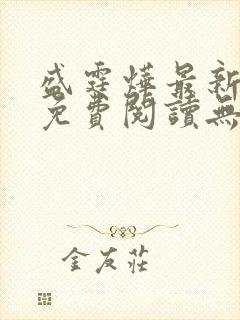 盛霆燁最新
免費閱讀無
金友莊